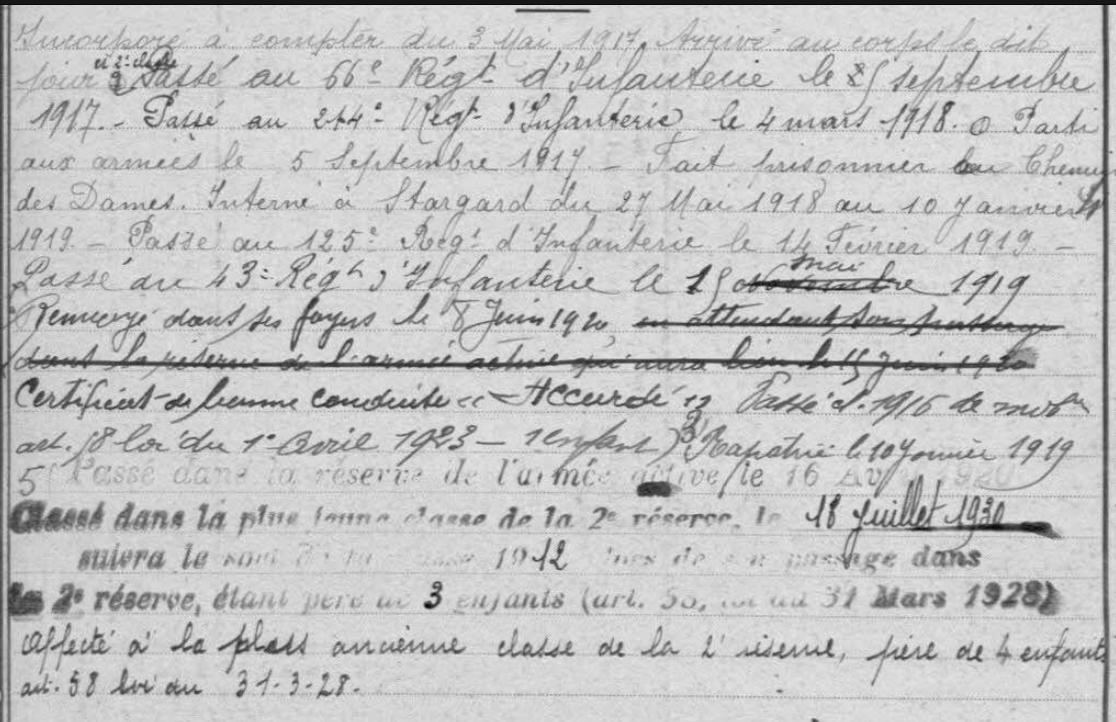 Incorporé à compter du 3 Mai 1917. Arrivé au corps le dit
jour et 2e classe Passé au 66e Régt d'Infanterie le 5 septembre
1917. - Passé au 244e Régt d'Infanterie le 4 mars 1918. Parti
aux armées le 5 Septembre 1917. - Fait prisonnier au Chemin
des Dames. Interné à Stargard du 27 Mai 1918 au 10 Janvier
1919. - Passé au 125e Régt d'Infanterie le 14 Février 1919. -
mai
Passé au 43e Régt d'Infanterie le 15 novembre 1919
Renvoyé dans ses foyers le 8 Juin 1920 en attendant son passage
dans la réserve de l'armée active qui aura lieu le 15 Juin 1920
Certificat de bonne conduite "Accordé" Passé cl. 1916 de mobon
art. 58 loi du 1er Avril 1923 - 1 enfant) Rapatrié le 10 Janvier 1919
5 Passé dans la réserve de l'armée active le 16 Avril 1920
Classé dans la plus jeune classe de la 2e réserve, le 18 Juillet 1930
suivra le sort de la classe 1912 lors de son passage dans
la 2e réserve, étant père de 3 enfants (art. 58, loi du 31 Mars 1928)
Affecté à la pluss ancienne classe de la 2e réserve, père de 4 enfants
art. 58 loi du 31-3-28.